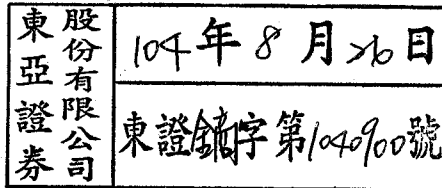 東亞證券
股份有限公司
104年8月26日
東證字第1040900號